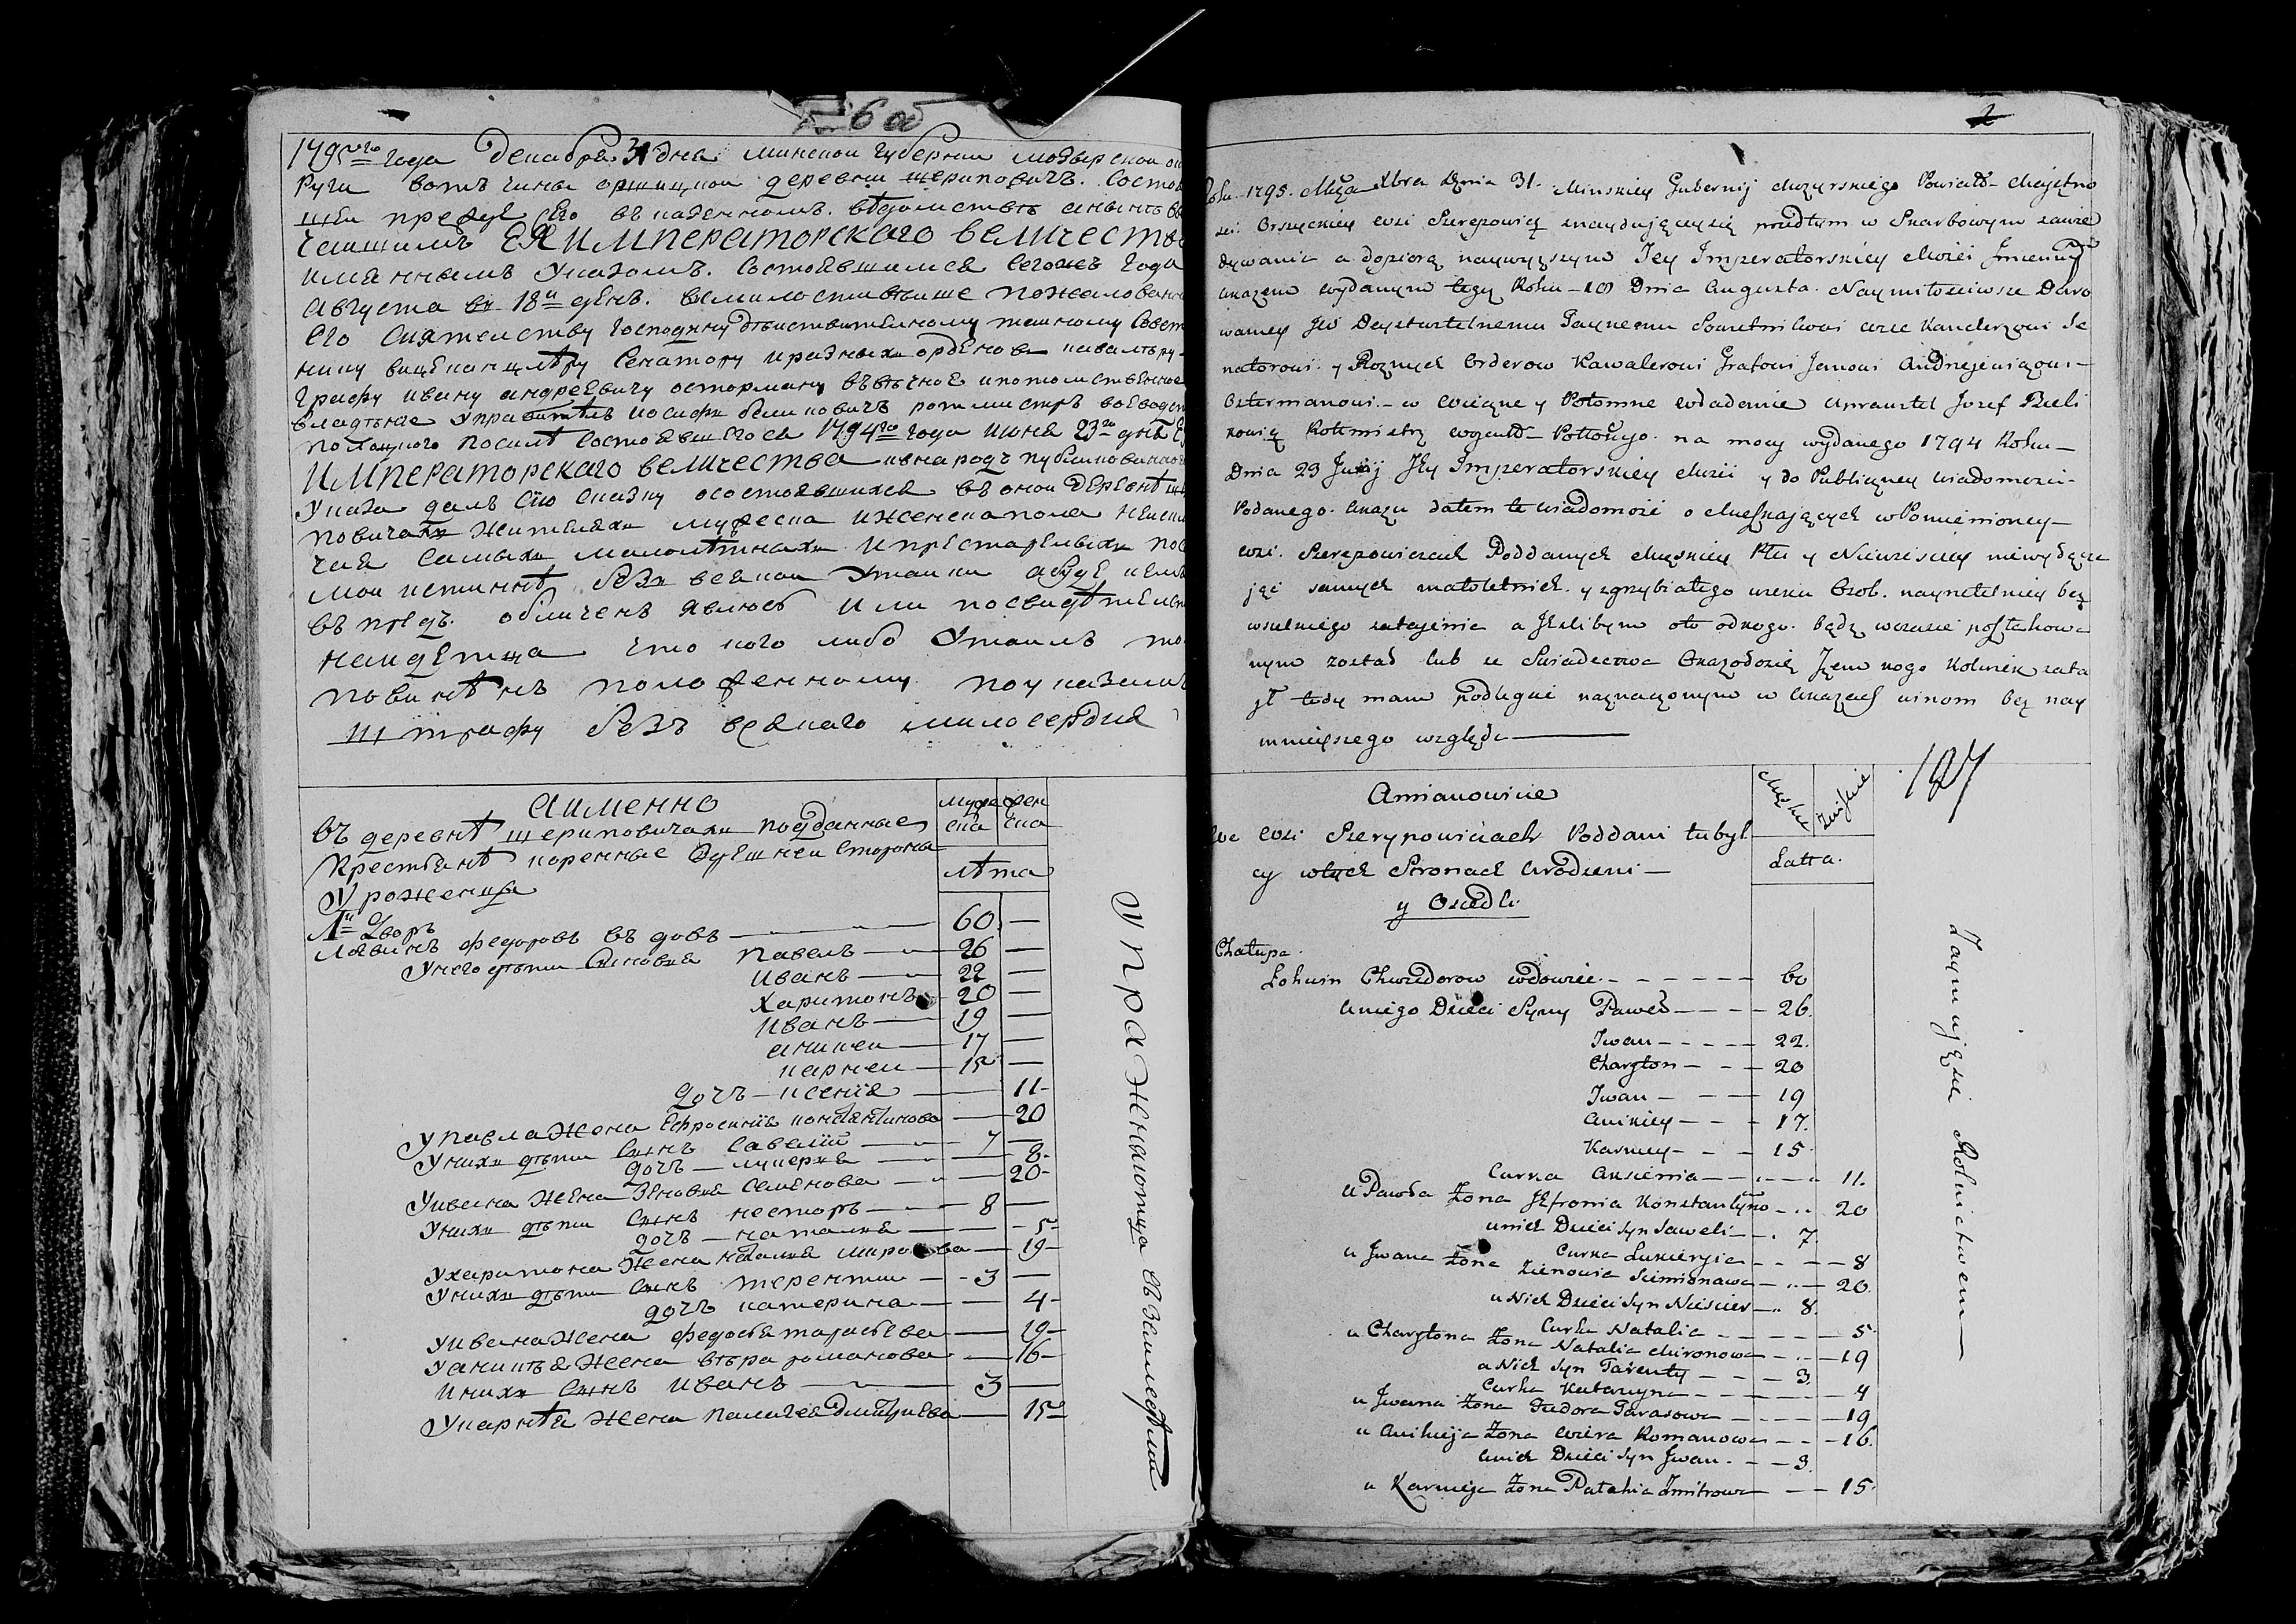 1795го года декабря 31 дня минской губерни мозырской ок
руги вотчины оршицкой деревни шериповичъ. Состоя
щей прежде сего въ казенномъ. вѣдомствѣ а нынѣ вы
чайшимъ ЕЯ ИМПЕРАТОРСКАГО величества
имяннымъ указомъ. состоявшимся сегожъ года
августа въ 18й день. всемилостивѣише пожалованной
его сиятельству господину дѣиствительному тайному совет
нику вицеканцлѣру сенатору и разныхъ орденовъ кавалѣру
графу ивану андреевичу остерману въ вѣчное и потомственное
владѣние управитель иосифъ
по силѣ состоявшегося 1794го года июня 23го дня Ея
ИМПЕРАТОРСКАГО величества и в народъ публикованнаго
указа далъ сию сказку о состоявшихся въ оной деревнѣ ше
повичахъ жителяхъ мужеска и женска пола не искл
чая самыхъ малолѣтныхъ и престарелыхъ по
мои истиннѣ безъ всякой утаики а буде кемъ
въ предъ. обличенъ явлюсь или по свидѣтельст
найдетца что кого либо утаилъ то
повинѣнъ положенному по указамъ
штрафу безъ всякаго милосердия
аименно
въ деревнѣ шериповичахъ подданные
крестьянѣ коренные здешней стороны
уроженцы
мужеска женска
лѣта
1й дворъ
Логвинъ федоровъ вдовъ — 60 —
у него дѣти сыновья павелъ — 26 —
иванъ — 22 —
харитонъ — 20 —
иванъ — 19 —
аникеи — 17 —
карнеи — 15 —
дочь — ксения — 11
у павла жена ефросиния константинова — 20
у нихъ дѣти сынъ савелий — 7 —
дочь — лукерья — 8
у ивана жена зеновья семенова — 20
у нихъ дѣти сынъ несторъ — 8 —
дочь — наталья — 5
у харитона жена наталья миронова — 19
у нихъ дѣти сынъ терентии — 3 —
дочь катерина — 4
у ивана жена федосья тарасьева — 19
у аникѣя жена вѣра романова — 16
у нихъ сынъ иванъ — 3 —
у карнѣя жена палагея дмитриева — 15
упражняютца въ земледелии
Roku 1795. Mca Xbra Dnia 31. Minskiey Gubernij Mozyrskiego Powiatu Majętno
sci Orszyckiey wsi Szerepowicz znayduiącey się przedtym w Skarbowym zawie
dywaniu a dopiorą naywyższym Jey Imperatorskiey Mosci Imiennym
Ukazem wydanym tegoż Roku — 18 Dnia Augusta. Naymiłościwsze Daro
waney JW Deystwitelnemu Taynemu Sowietnikowi wice Kanclerzowi Se
natorowi y Roznych Orderow Kawalerowi Grafowi Janowi Andrejewiczowi —
Ostermanowi — w Wieczne y Potomne władanie Uprawitel Jozef Bieli
kowicz Rotmistrz na mocy wydanego 1794 Roku —
Dnia 23 Junij Jey Imperatorskiey Mosci y do Publiczney wiadomosci
Podanego. Ukazu dałem te wiadomość o znayduiących w Pomienioney —
wsi. Szerepowiczach Poddanych Męskiey Płci y Niewiesciey niewyłącza
jąc samych małoletnich. y zgrzybiałego wieku Osob. nayrzetelniey bez
wszelkiego zatajenia a Jeslibym oto odkogo. będz w czasie poszlakowa
nym został lub ze Swiadectwa Okazałosie Żem kogo kolwiek zata
ił tedy mam podlegać naznaczonym w Ukazach winom bez nay
mnieyszego względu —
187
Amianowicie
we wsi Szerypowiczach Poddani tubyl
cy w tych Stronach Urodzeni —
y Osiedli.
Męskie Żeńskie
Latta.
Chałupa.
Łohwin Chwiedorow wdowiec — 60
Uniego Dzieci Syny Paweł — 26.
Jwan — 22.
Charyton — 20
Jwan — 19
Anikiey — 17.
Karniey — 15
Curka Aksienia — 11.
U Pawła Żona Jefronia Konstantyno — 20
unich Dzieci Syn Saweli — 7.
Curka Łukierja — 8
u Jwana Żona Zienowia Siemionawa — 20.
u Nich Dzieci Syn Niescier — 8.
Curka Natalia — 5
u Charytona Żona Natalia Mironowa — 19
u Nich Syn Tarenty — 3.
Curka Katarzyna — 4
u Jwana Żona Fiedora Tarasowa — 19
u Anikieja Żona Wiera Romanowa — 16.
Unich Dzieci Syn Jwan. — 3.
u Karnieja Żona Pałahia Dmitrowa — 15
Zaymujązie Rolnictwem —